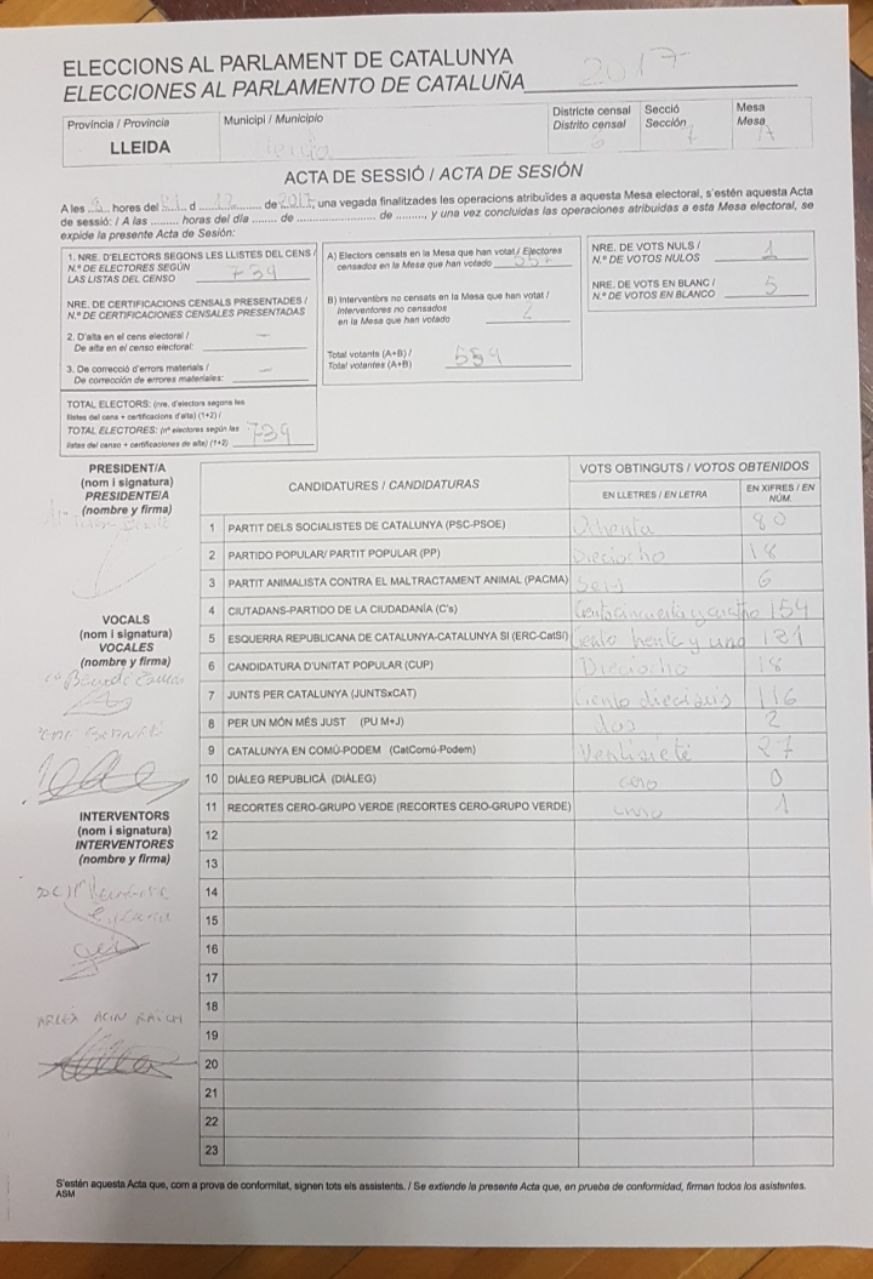 ELECCIONS AL PARLAMENT DE CATALUNYA
ELECCIONES AL PARLAMENTO DE CATALUÑA 2017
Província / Provincia
LLEIDA
Municipi / Municipio
Lleida
Districte censal
Distrito censal
6
Secció
Sección
7
Mesa
Mesa
A
ACTA DE SESSIÓ / ACTA DE SESIÓN
A les ... hores del ... d ... de 2017, una vegada finalitzades les operacions atribuïdes a aquesta Mesa electoral, s'estén aquesta Acta
de sessió: / A las ......... horas del día ........ de ........................ de ........., y una vez concluidas las operaciones atribuidas a esta Mesa electoral, se
expide la presente Acta de Sesión:
1. NRE. D'ELECTORS SEGONS LES LLISTES DEL CENS /
N.º DE ELECTORES SEGÚN
LAS LISTAS DEL CENSO 739
NRE. DE CERTIFICACIONS CENSALS PRESENTADES /
N.º DE CERTIFICACIONES CENSALES PRESENTADAS
2. D'alta en el cens electoral /
De alta en el censo electoral: —
3. De correcció d'errors materials /
De corrección de errores materiales: —
TOTAL ELECTORS: (nre. d'electors segons les
llistes del cens + certificacions d'alta) (1+2) /
TOTAL ELECTORES: (nº electores según las
listas del censo + certificaciones de alta) (1+2) 739
A) Electors censats en la Mesa que han votat / Electores
censados en la Mesa que han votado 557
B) Interventors no censats en la Mesa que han votat /
Interventores no censados
en la Mesa que han votado 2
Total votants (A+B) /
Total votantes (A+B) 559
NRE. DE VOTS NULS /
N.º DE VOTOS NULOS 1
NRE. DE VOTS EN BLANC /
N.º DE VOTOS EN BLANCO 5
PRESIDENT/A
(nom i signatura)
PRESIDENTE/A
(nombre y firma)
VOCALS
(nom i signatura)
VOCALES
(nombre y firma)
INTERVENTORS
(nom i signatura)
INTERVENTORES
(nombre y firma)
ACIN
CANDIDATURES / CANDIDATURAS
VOTS OBTINGUTS / VOTOS OBTENIDOS
EN LLETRES / EN LETRA
EN XIFRES / EN
NÚM.
1 PARTIT DELS SOCIALISTES DE CATALUNYA (PSC-PSOE) Ochenta 80
2 PARTIDO POPULAR/ PARTIT POPULAR (PP) Dieciocho 18
3 PARTIT ANIMALISTA CONTRA EL MALTRACTAMENT ANIMAL (PACMA) Seis 6
4 CIUTADANS-PARTIDO DE LA CIUDADANÍA (C's) Ciento cincuenta y cuatro 154
5 ESQUERRA REPUBLICANA DE CATALUNYA-CATALUNYA SÍ (ERC-CatSÍ) Ciento treinta y uno 131
6 CANDIDATURA D'UNITAT POPULAR (CUP) Dieciocho 18
7 JUNTS PER CATALUNYA (JUNTSxCAT) Ciento dieciseis 116
8 PER UN MÓN MÉS JUST (PU M+J) dos 2
9 CATALUNYA EN COMÚ-PODEM (CatComú-Podem) Ventisiete 27
10 DIÀLEG REPUBLICÀ (DIÀLEG) cero 0
11 RECORTES CERO-GRUPO VERDE (RECORTES CERO-GRUPO VERDE) 1
12
13
14
15
16
17
18
19
20
21
22
23
S'estén aquesta Acta que, com a prova de conformitat, signen tots els assistents. / Se extiende la presente Acta que, en prueba de conformidad, firman todos los asistentes.
ASM